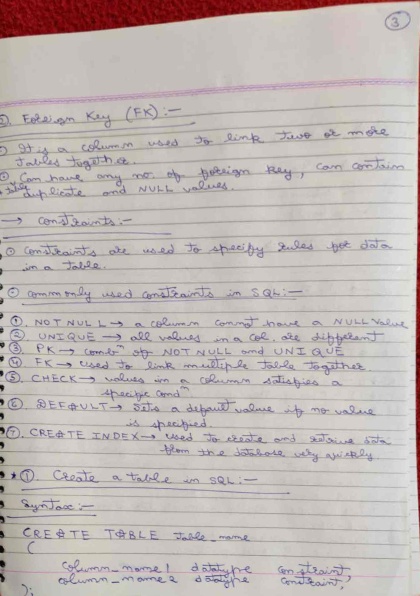 3
2). Foreign Key (FK) :-
⊙ It is a column used to link two or more
tables together.
⊙ Can have any no. of foreign key, can contain
table duplicate and NULL values.
→ Constraints :-
⊙ Constraints are used to specify rules for data
in a table.
⊙ Commonly used constraints in SQL :-
①. NOT NULL → a column cannot have a NULL value
②. UNIQUE → all values in a col. are different
③. PK → combⁿ of NOT NULL and UNIQUE
④. FK → used to link multiple table together.
⑤. CHECK → values in a column satisfies a
specific condⁿ
⑥. DEFAULT → Sets a default value if no value
is specified.
⑦. CREATE INDEX → used to create and retrive data
from the database very quickly
* ①. Create a table in SQL :-
Syntax :-
CREATE TABLE table_name
(
column_name1 datatype constraint,
column_name2 datatype constraint,
);